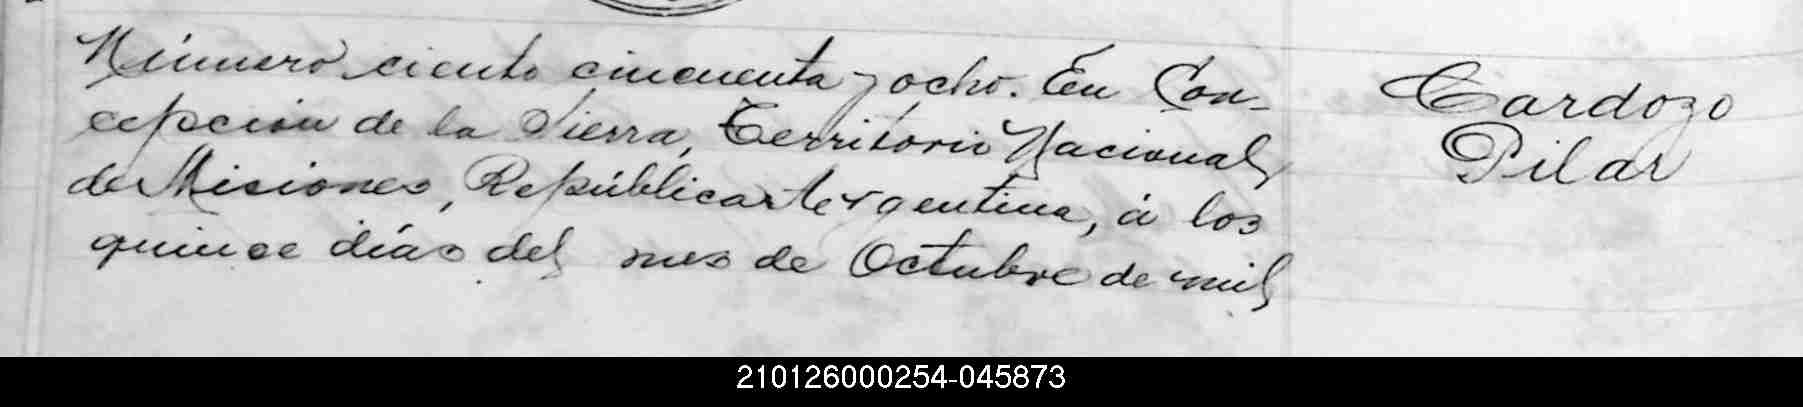 Número ciento cincuenta y ocho. En Con-
cepción de la Sierra, Territorio Nacional
de Misiones, República Argentina, á los
quince días del mes de Octubre de mil
Cardozo
Pilar
210126000254-045873